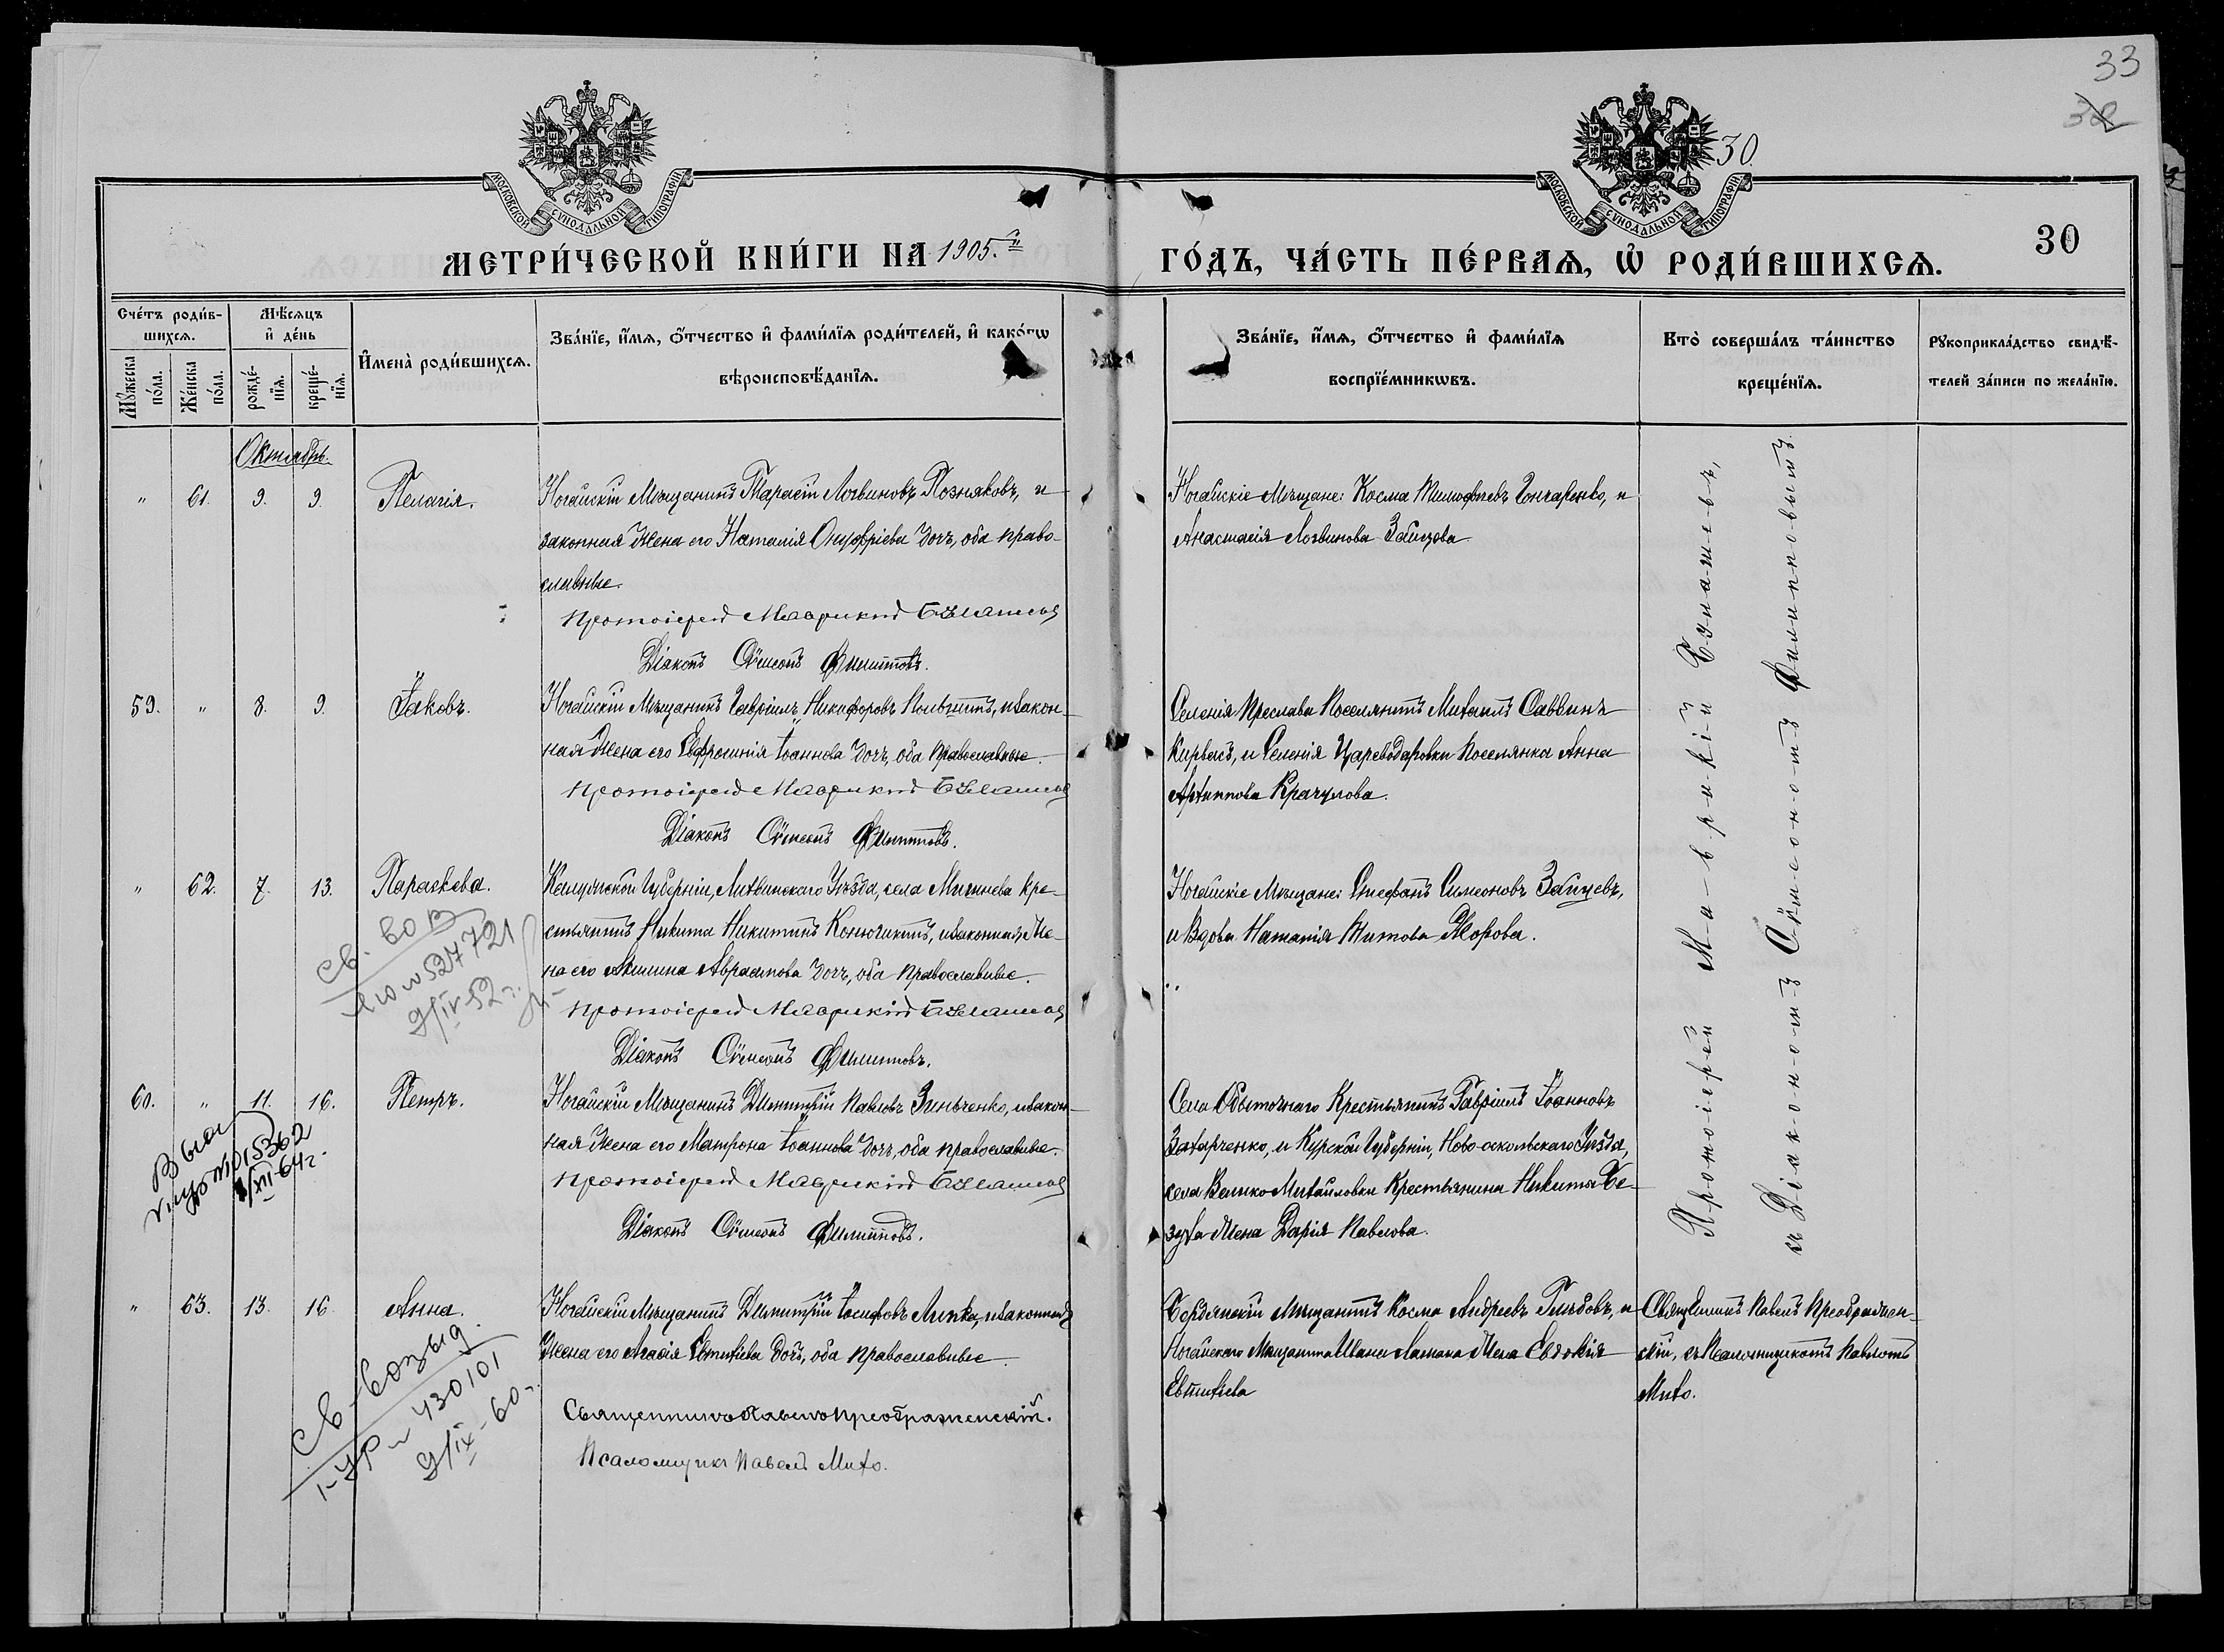 33
32
30
МОСКОВСКОЙ СУНОДАЛЬНОЙ ТИПОГРАФІИ
МОСКОВСКОЙ СУНОДАЛЬНОЙ ТИПОГРАФІИ
МЕТРИ́ЧЕСКОЙ КНИ́ГИ НА 1905.й
ГО́ДЪ, ЧА́СТЬ ПЕ́РВАѦ, Ѡ҆ РОДИ́ВШИХСѦ.
30
Сче́тъ роди́в-
шихсѧ.
Мѣ́сѧцъ
и҆ де́нь
Мꙋ́жеска по́ла.
Же́нска по́ла.
рожде́-нїѧ.
креще́-нїѧ.
И҆мена̀ роди́вшихсѧ.
Зва́нїе, и҆́мѧ, ѻ҆́тчество и҆ фами́лїѧ роди́телей, и҆ како́гѡ
вѣроисповѣ́данїѧ.
Зва́нїе, и҆́мѧ, ѻ҆́тчество и҆ фами́лїѧ
воспрїе́мникѡвъ.
Кто̀ соверша́лъ та́инство
креще́нїѧ.
Рꙋкоприкла́дство свидѣ́-
телей за́писи по жела́нїю.
Октябрь.
" 61. 9. 9. Пелагія.
Ногайскій Мѣщанинъ Тарасій Логвиновъ Позняковъ, и
законная Жена его Наталія Онуфріева Дочь, оба право-
славные.
Протоіерей Маврикій Бунашевъ
Діаконъ Сѷмеонъ Филипповъ.
Ногайскіе Мѣщане: Косма Тимофеевъ Гончаренко, и
Анастасія Логвинова Зайцева
59. " 8. 9. Іаковъ.
Ногайскій Мѣщанинъ Гавріилъ Никифоровъ, изакон-
ная Жена его Евфросинія Іоаннова Дочь, оба Православные.
Протоіерей Маврикій Бунашевъ
Діаконъ Сѷмеонъ Филипповъ.
Селенія Преслава Поселянинъ Михаилъ Саввинъ
и Селенія Цареводаровки Поселянка Анна
Архиппова Крачулова.
" 62. 7. 13. Параскева.
Калужской Губерніи, Лихвинскаго Уѣзда, села Мишнева Кре-
стьянинъ Никита Никитинъ, изаконная Же-
на его Акилина Авраамова Дочь, оба Православные.
Протоіерей Маврикій Бунашевъ
Діаконъ Сѷмеонъ Филипповъ.
Ногайскіе Мѣщане: Стефанъ Симеоновъ Зайцевъ,
и Вдова Наталія Титова Жорова.
527721
9/IV-52 г.
60. " 11. 16. Петръ.
Ногайскій Мѣщанинъ Димитрій Павловъ Зинченко, изакон-
ная Жена его Матрона Іоаннова Дочь, оба православные.
Протоіерей Маврикій Бунашевъ
Діаконъ Сѷмеонъ Филипповъ.
Села Обыточнаго Крестьянинъ Гавріилъ Іоанновъ
Захарченко, и Курской Губерніи, Ново-оскольскаго Уѣзда,
села Велико Михайловки Крестьянина Никиты Бе-
зуха Жена Дарія Павлова.
" 63. 13. 16. Анна.
Ногайскій Мѣщанинъ Димитрій Іосифовъ Липка, изаконная
Жена его Агасія Евтихіева Дочь, оба Православные
Священникъ Павелъ Преображенскій.
Псаломщикъ Павелъ Михо.
Бердянскій Мѣщанинъ Косма Андреевъ Глыбовъ, и
Ногайскаго Мѣщанина Ивана Жена Евдокія
Евтихіева
Священникъ Павелъ Преображен-
скій, съ Псаломщикомъ Павломъ
Михо.
430101
9/IX-60 г.
Протоіерей Маврикій Бунашевъ,
съ Діакономъ Сѷмеономъ Филипповымъ.